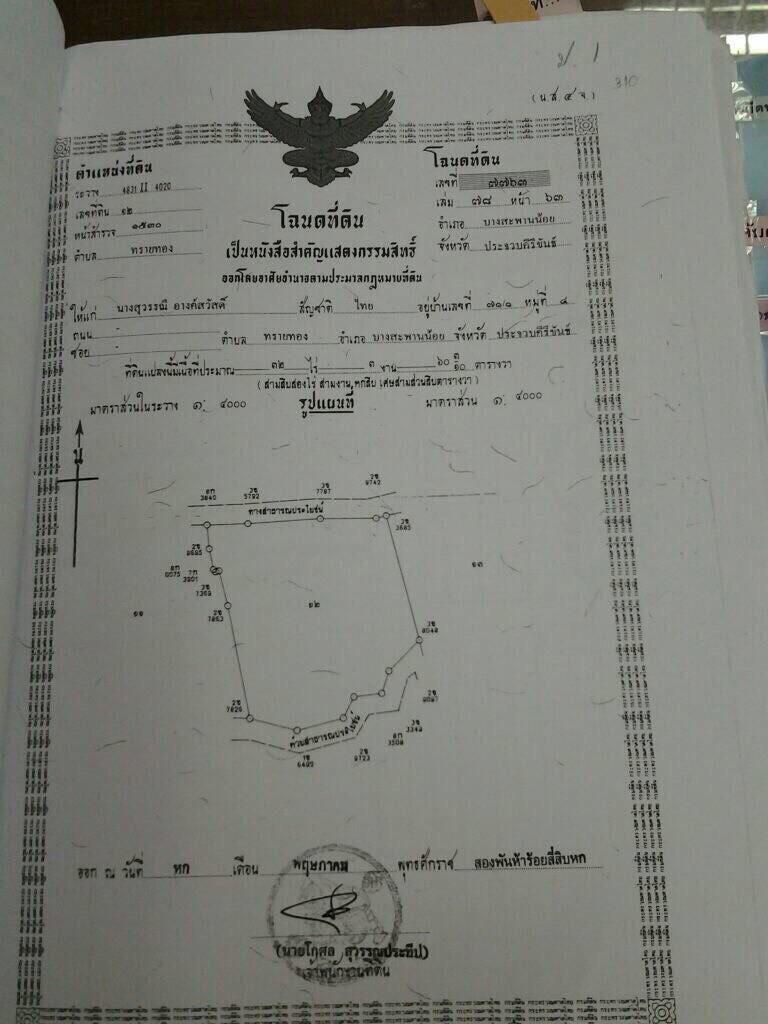 ป. 1
310
(น.ส. ๔ จ.)
ตำแหน่งที่ดิน
ระวาง 4831 II 4020
เลขที่ดิน ๑๒
หน้าสำรวจ ๑๕๓๐
ตำบล ทรายทอง
โฉนดที่ดิน
เลขที่ ๗๗๖๓
เล่ม ๗๘ หน้า ๖๓
อำเภอ บางสะพานน้อย
จังหวัด ประจวบคีรีขันธ์
โฉนดที่ดิน
เป็นหนังสือสำคัญแสดงกรรมสิทธิ์
ออกโดยอาศัยอำนาจตามประมวลกฎหมายที่ดิน
ให้แก่ นางสุวรรณี อางค์สวัสดิ์ สัญชาติ ไทย อยู่บ้านเลขที่ ๗๑/๑ หมู่ที่ ๔
ถนน - ตำบล ทรายทอง อำเภอ บางสะพานน้อย จังหวัด ประจวบคีรีขันธ์
ซอย -
ที่ดินแปลงนี้มีเนื้อที่ประมาณ ๓๒ ไร่ ๓ งาน ๖๐ ๓/๑๐ ตารางวา
(สามสิบสองไร่ สามงาน หกสิบ เศษสามส่วนสิบตารางวา)
มาตราส่วนในระวาง ๑: ๔๐๐๐ รูปแผนที่ มาตราส่วน ๑: ๔๐๐๐
น
อท 3840
3ข 5792
3ข 7787
2ข 9742
ทางสาธารณประโยชน์
3ข 3685
2ข 9695
อท 0075
7ท 3901
3ข 7369
2ข 7863
๑๑
๑๒
๑๓
3ข 8048
2ข 7826
2ข 9097
3ข 3349
อท 3508
2ข 9723
1ข 6495
ห้วยสาธารณประโยชน์
ออก ณ วันที่ หก เดือน พฤษภาคม พุทธศักราช สองพันห้าร้อยสี่สิบหก
(นายโกศล สุวรรณประทีป)
เจ้าพนักงานที่ดิน